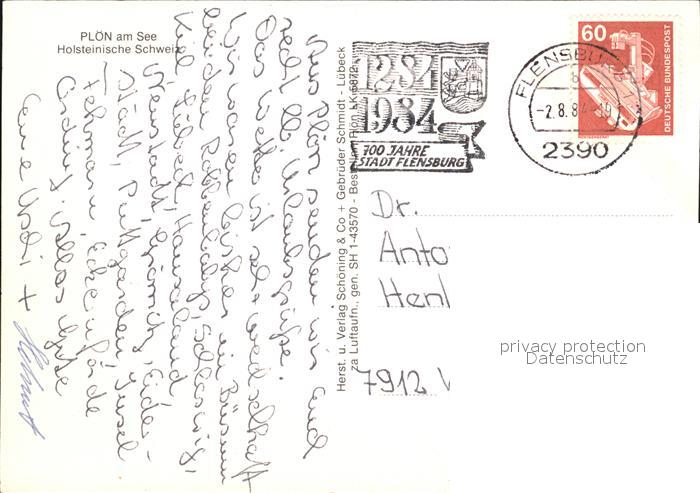 PLÖN am See
Holsteinische Schweiz
Aus Plön senden wir Euch
recht llb. Urlaubsgrüße.
Das Wetter ist sehr wechselhaft
Wir waren bisher in Büsum
bei den Robbenbabys, Schleswig,
Kiel, Lübeck, Hansaland
Neustadt, Grömitz, Eider-
stedt, Puttgarden, Insel
Fehmarn, Eckernförde
Eure Uschi + Helmut
Herst. u. Verlag Schöning & Co + Gebrüder Schmidt - Lübeck
za Luftaufn., gen. SH 1-43570 - Best
Plön LK 5872
1284
1984
700 JAHRE
STADT FLENSBURG
FLENSBURG
-2.8.84-19
2390
60
DEUTSCHE BUNDESPOST
Dr.
Anto
Henl
7912 W
privacy protection
Datenschutz